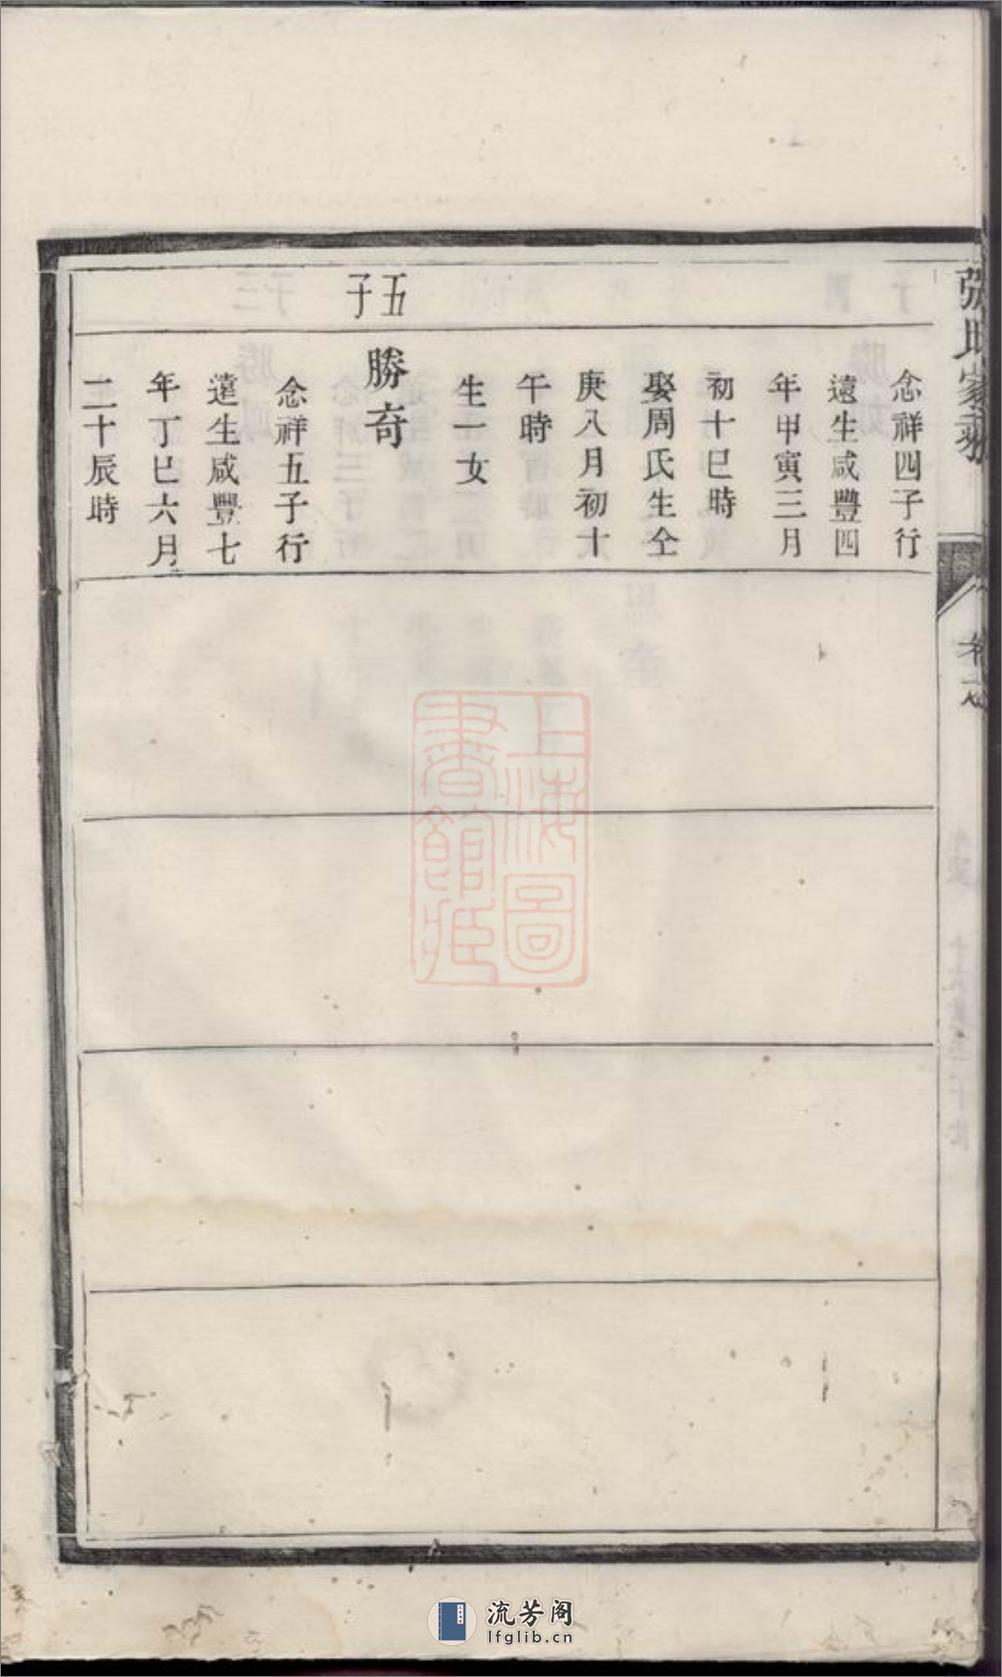 張氏家乘
念祥四子行
遠生咸豐四
年甲寅三月
初十巳時
娶周氏生仝
庚八月初十
午時
生一女
五子
勝奇
念祥五子行
達生咸豐七
年丁巳六月
二十辰時
上海圖
書館藏
流芳阁
lfglib.cn